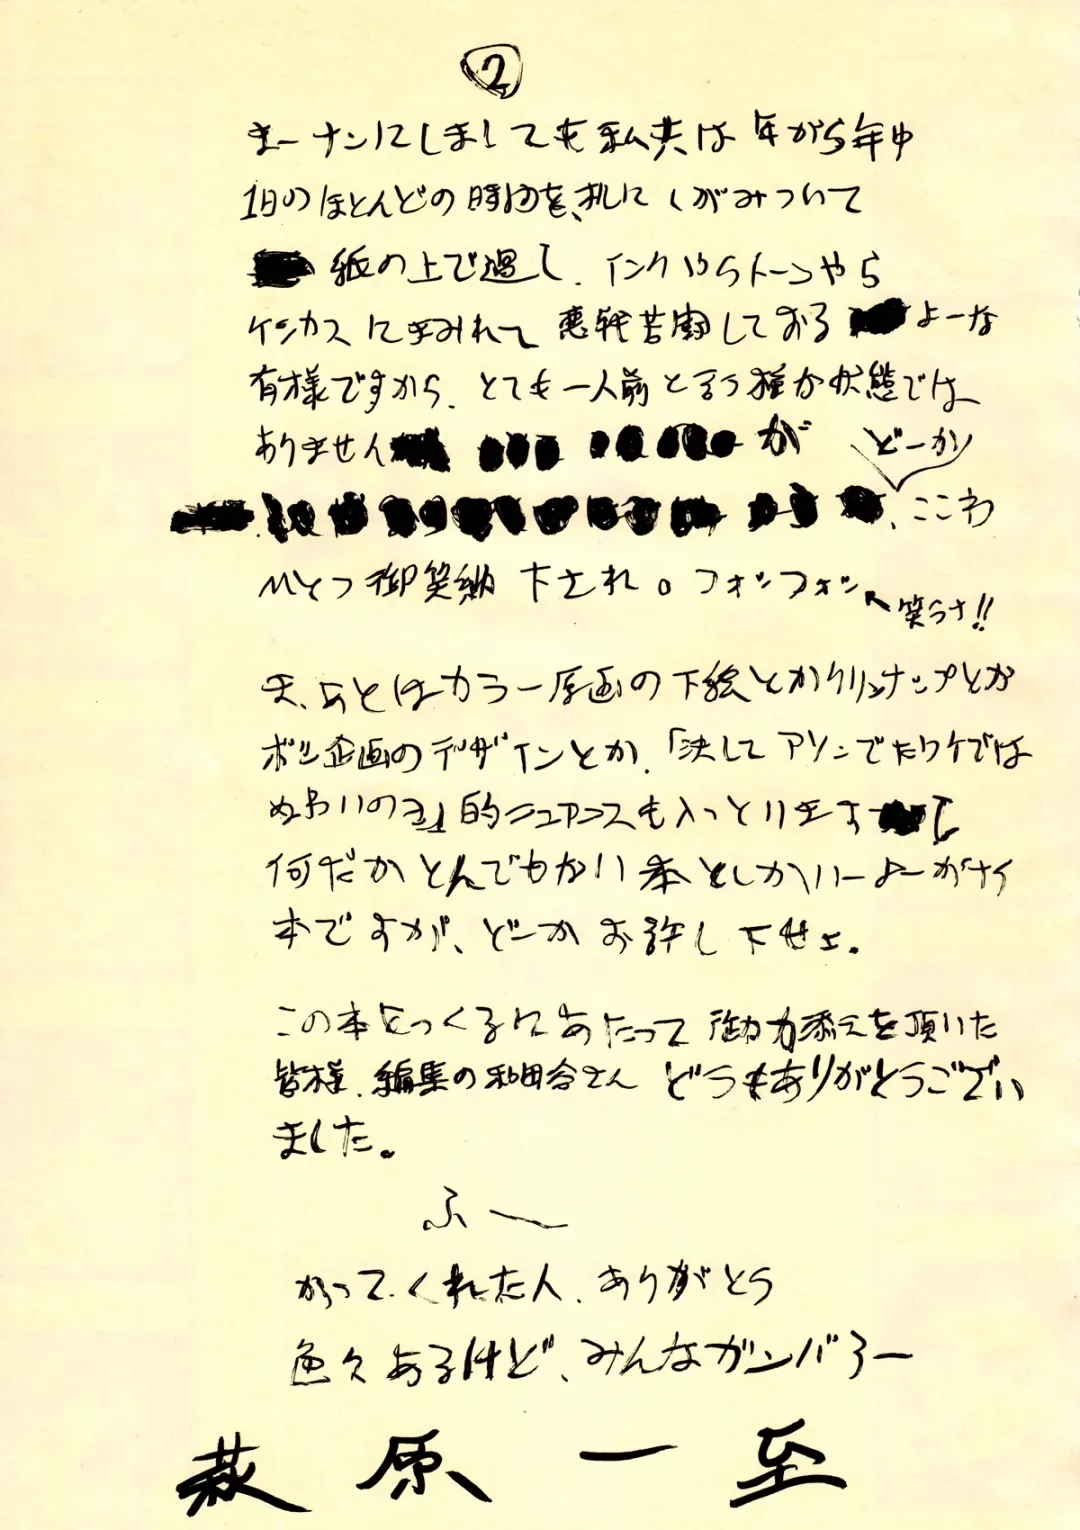 ②
まーナンにしましても私共は年がら年中
1日のほとんどの時間を、机にくがみついて
紙の上で過し、インクやらトーンやら
ケシカスにまみれて悪戦苦闘しておるよーな
有様ですから、とても一人前と言う様な状態では
ありませんが どーか
、ここわ
ひとつ御笑納下され。フォンフォン←笑うナ!!
ま、あとはカラー原画の下絵とかクリンナップとか
ボツ企画のデザインとか、「決してアソンでたワケでは
ぬぉいのヨ」的ニュアンスも入っとりますし
何だかとんでもない本としかいーよーがナイ
本ですが、どーかお許し下せぇ。
この本をつくるにあたって御力添えを頂いた
皆様、編集の和田谷さんどうもありがとうござい
ました。
ふ〜
かってくれた人、ありがとう
色々あるけど、みんなガンバろー
萩原一至